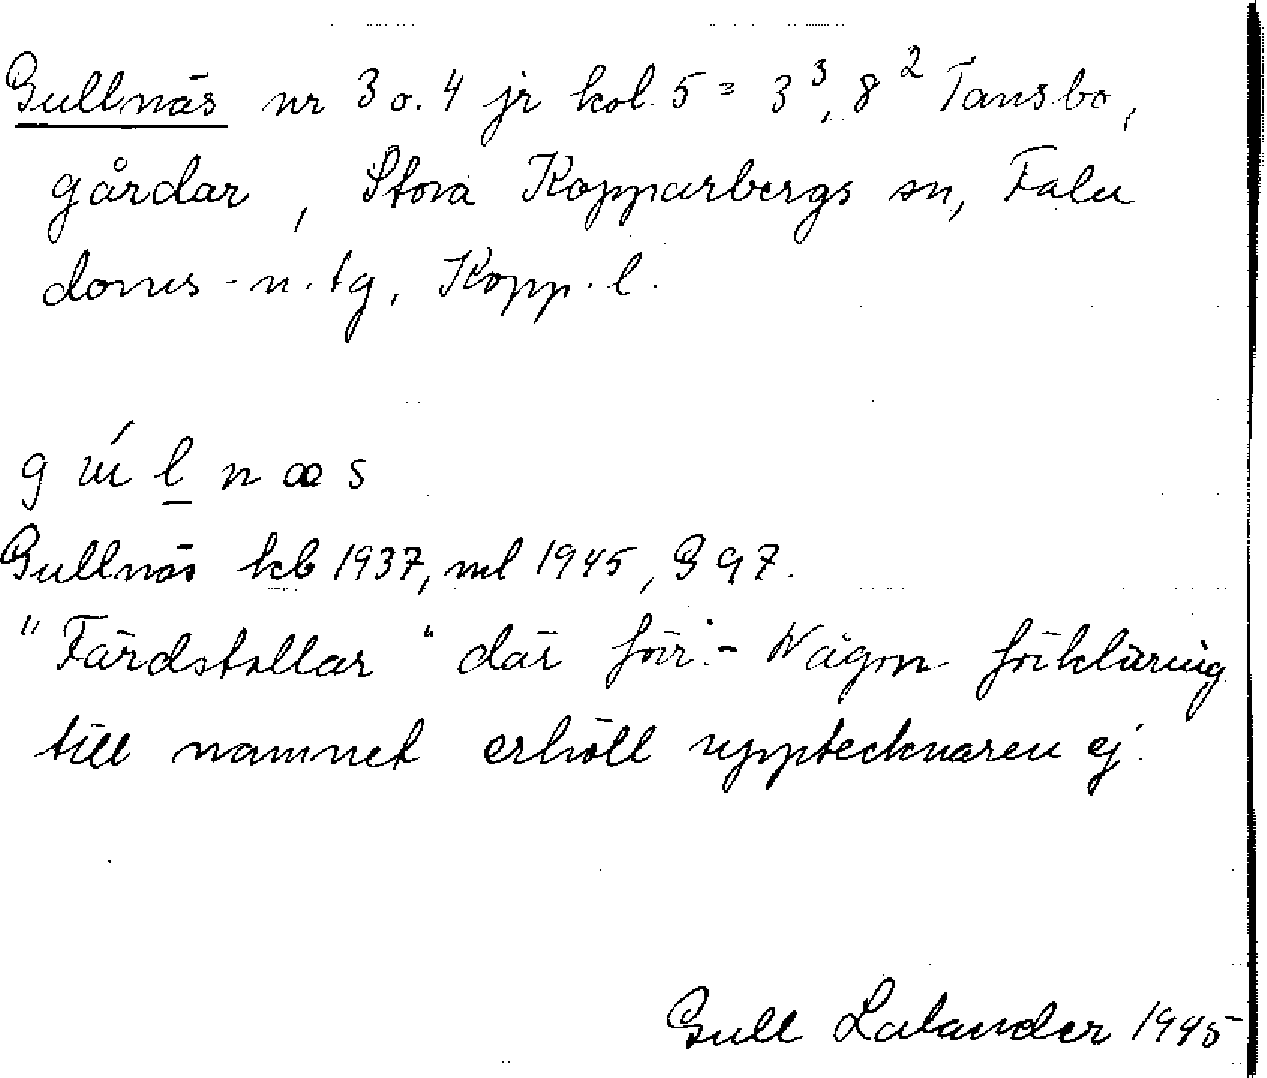 Gullnäs nr 3 o. 4 jr kol. 5 = 3³, 8² Tansbo,
gårdar, Stora Kopparbergs sn, Falu
doms- n. tg, Kopp. l.
g ú l n æ s
Gullnäs kb 1937, ml 1945, G 97.
"Färdstallar" där förr. - Någon förklaring
till namnet erhöll upptecknaren ej.
Gull Lalander 1945